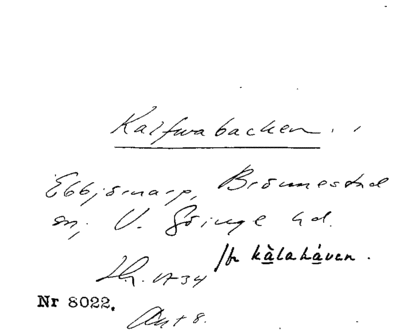 Kalfvabacken.
Ebbjörnarp, Brönnestad
sn, V. Göinge hd.
/fr kàlahávan.
Lh. 1734
Nr 8022.
Akt 8.